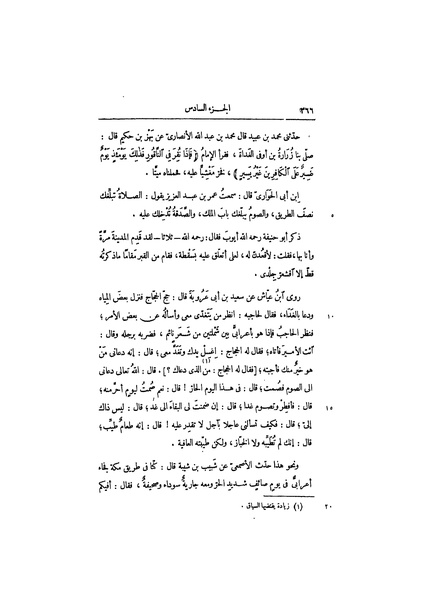 ٣٦٦ الجزء السادس
حدّثنى محمد بن عبيد قال محمد بن عبد الله الأنصارىّ عن بَهْز بن حكيم قال :
صلّى بنا زُرَارةُ بن أَوفَى الغَداةَ ، فقرأ الإمامُ ﴿ فَإِذَا نُقِرَ فِى ٱلنَّاقُورِ فَذَلِكَ يَوْمَئِذٍ يَوْمٌ
عَسِيرٌ عَلَى ٱلْكَافِرِينَ غَيْرُ يَسِيرٍ ﴾ ، فخرّ مَغْشِيًّا عليه ، فحملناه ميتًا .
ابن أبى الحَوَارَى قال : سمعتُ عمر بن عبد العزيز يقول : الصلاةُ تبلّغك
٥ نصفَ الطريق ، والصوم يبلّغك بابَ الملك ، والصَّدقةُ تُدْخِلك عليه .
ذكر أبو حنيفة رحمه الله أيوبَ فقال : رحمه الله – ثلاثًا – لقد قَدِم المدينةَ مرّةً
وأنا بها ، فقلت : لأقعدنّ له ، لعلى أتعلّق عليه بسَقْطة ، فقام من القبر مقامًا ما ذكرتُه
قطّ إلا آقشعرّ جِلْدى .
روى ابنُ عيّاش عن سعيد بن أبى عَرُوبَةَ قال : حجّ الحجّاج فنزل بعض المياه
١٠ ودعا بالغَدَاء ، فقال لحاجبه : انظر من يَتَغدّى معى وأسألُه عن بعض الأمر ؛
فنظر الحاجبُ فإذا هو بأعرابىّ بين شَمْلتين من شَعَر نائمٍ ، فضربه برجله وقال :
ٱئت الأميرَ فأتاه ؛ فقال له الحجاج : اغسِلْ يدك وتَغَدَّ معى ؛ قال : إنه دعانى مَنْ
هو خيرٌ منك فأجبتُه ؛ [فقال له الحجاج : مَن الذى دعاك ؟] (١) . قال : اللّٰهُ تعالى دعانى
الى الصوم فصُمت ؛ قال : فى هذا اليوم الحارّ ! قال : نعم صُمتُ ليومٍ أحرَّ منه ؛
١٥ قال : فأفطِرْ وتصوم غدا ؛ قال : إن ضمِنتَ لى البقاءَ الى غدٍ ؛ قال : ليس ذاك
إلىّ ؛ قال : فكيف تسألنى عاجلا بآجل لا تقدر عليه ! قال : إنه طعامٌ طيّب ؛
قال : إنك لم تُطيِّبه ولا الخبّاز ، ولكن طيّبته العافية .
ونحو هذا حدّث الأصمعىّ عن شَبيب بن شيبة قال : كنّا فى طريق مكة فجاء
أعرابىٌّ فى يوم صائفٍ شديد الحرّ ومعه جاريةٌ سوداء وصحيفةٌ ، فقال : أفيكم
٢٠ (١) زيادة يقتضيها السياق .